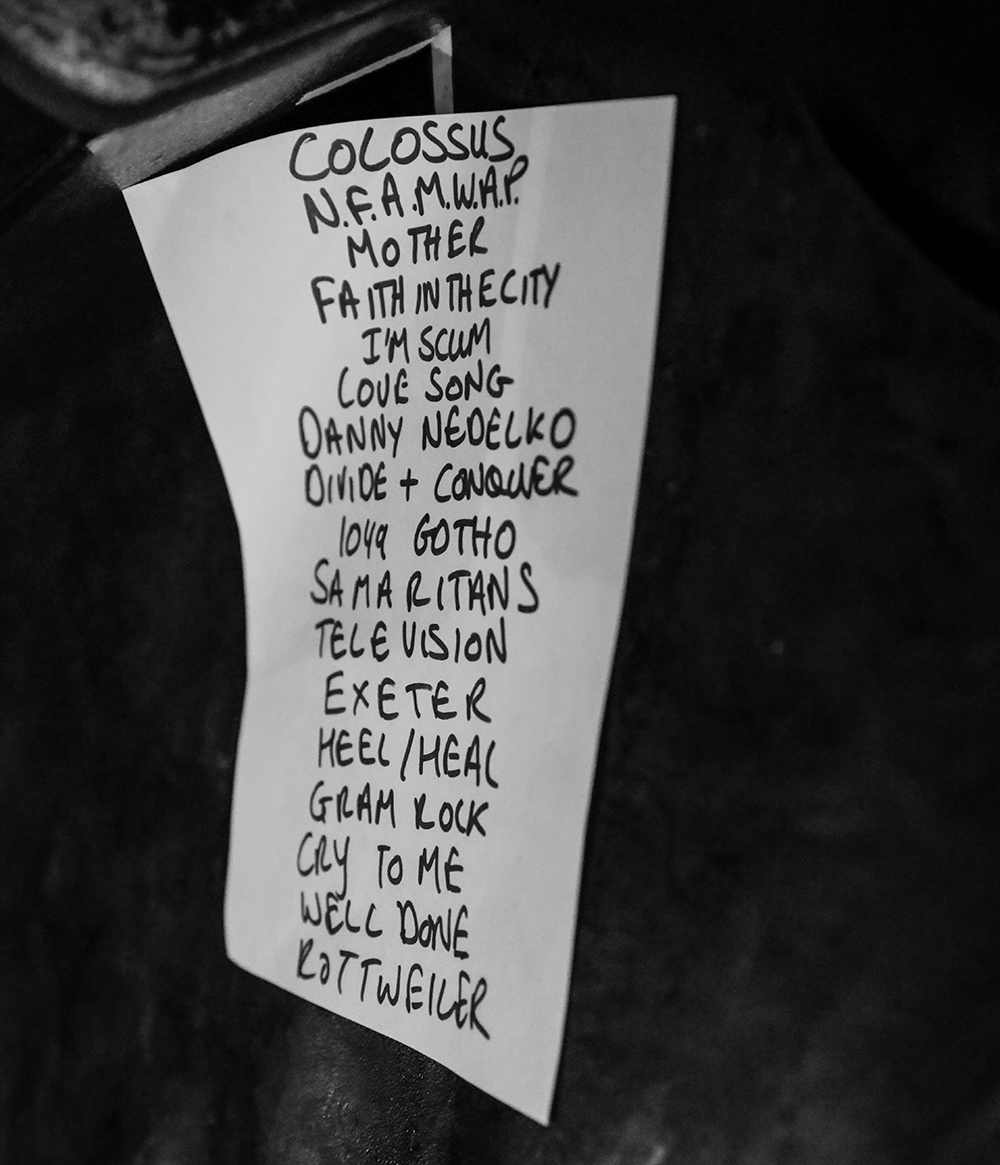 COLOSSUS
N.F.A.M.W.A.P.
MOTHER
FAITH IN THE CITY
I'M SCUM
LOVE SONG
DANNY NEDELKO
DIVIDE + CONQUER
1049 GOTHO
SAMARITANS
TELEVISION
EXETER
HEEL/HEAL
GRAM ROCK
CRY TO ME
WELL DONE
ROTTWEILER